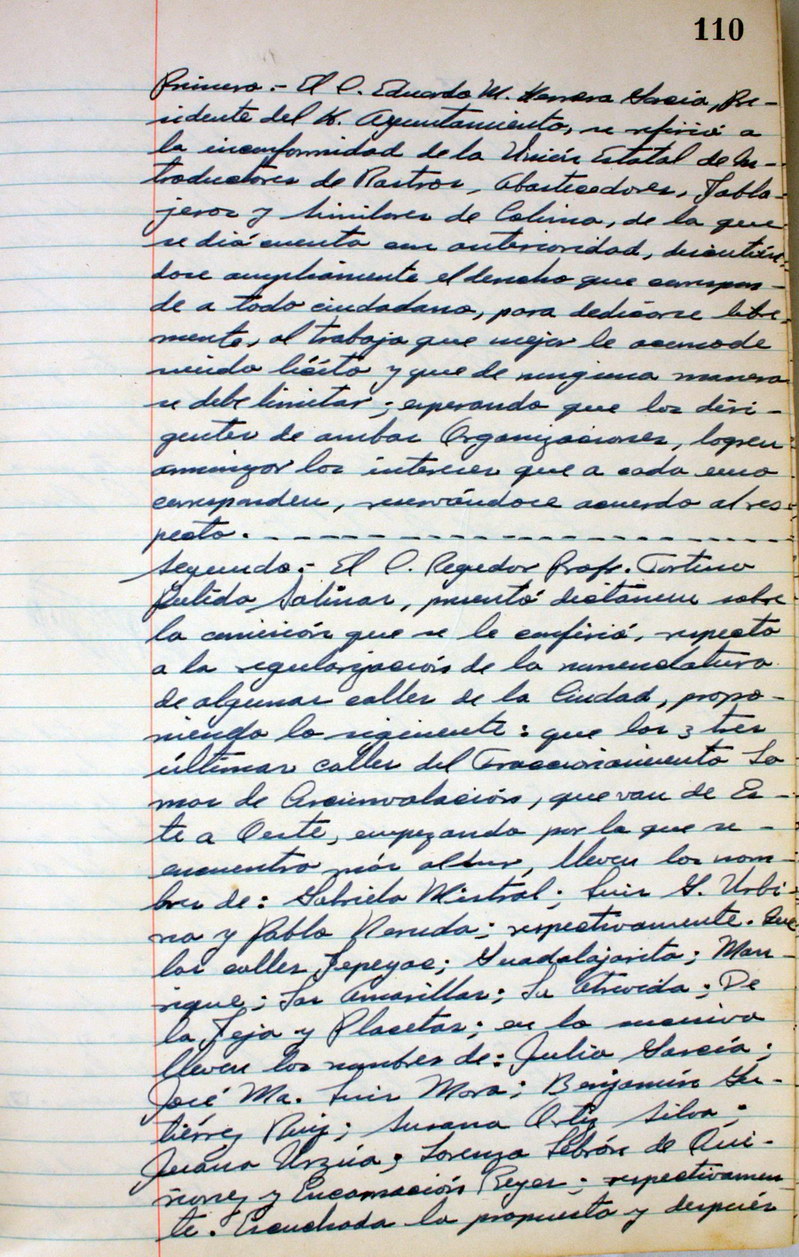 110
Primero.- El C. Eduardo M. Herrera García, Pre-
sidente del H. Ayuntamiento, se refirió a
la inconformidad de la Unión Estatal de In-
troductores de Rastros, Abastecedores, Tabla-
jeros y Similares de Colima, de la que
se dió cuenta con anterioridad, discutién-
dose ampliamente el derecho que correspon-
de a todo ciudadano, para dedicarse libre-
mente, al trabajo que mejor le acomode
siendo lícito y que de ninguna manera
se debe limitar; esperando que los diri-
gentes de ambas Organizaciones, logren
armonizar los intereses que a cada uno
corresponden, reservándose acuerdo al res-
pecto.
Segundo.- El C. Regidor Profr. Tortino
Pulido Salinas, presentó dictamen sobre
la comisión que se le confirió, respecto
a la regularización de la nomenclatura
de algunas calles de la Ciudad, propo-
niendo lo siguiente: que las 3 tres
últimas calles del Fraccionamiento Lo
mas de Circunvalación, que van de Es-
te a Oeste, empezando por la que se-
encuentra más al Sur, lleven los nom-
bres de: Gabriela Mistral; Luis G. Urbi-
na y Pablo Neruda; respectivamente. Que
las calles Tepeyac; Guadalajarita; Man-
rique; Las Amarillas; La Atrevida; De
la Teja y Placetas; en lo sucesivo
lleven los nombres de: Julia García;
José Ma. Luis Mora; Benjamín Gu-
tiérrez Ruiz; Susana Ortiz Silva;
Juana Urzúa; Lorenzo Lebrón de Qui-
ñonez y Encarnación Reyes; respectivamen
te. Escuchada la propuesta y después